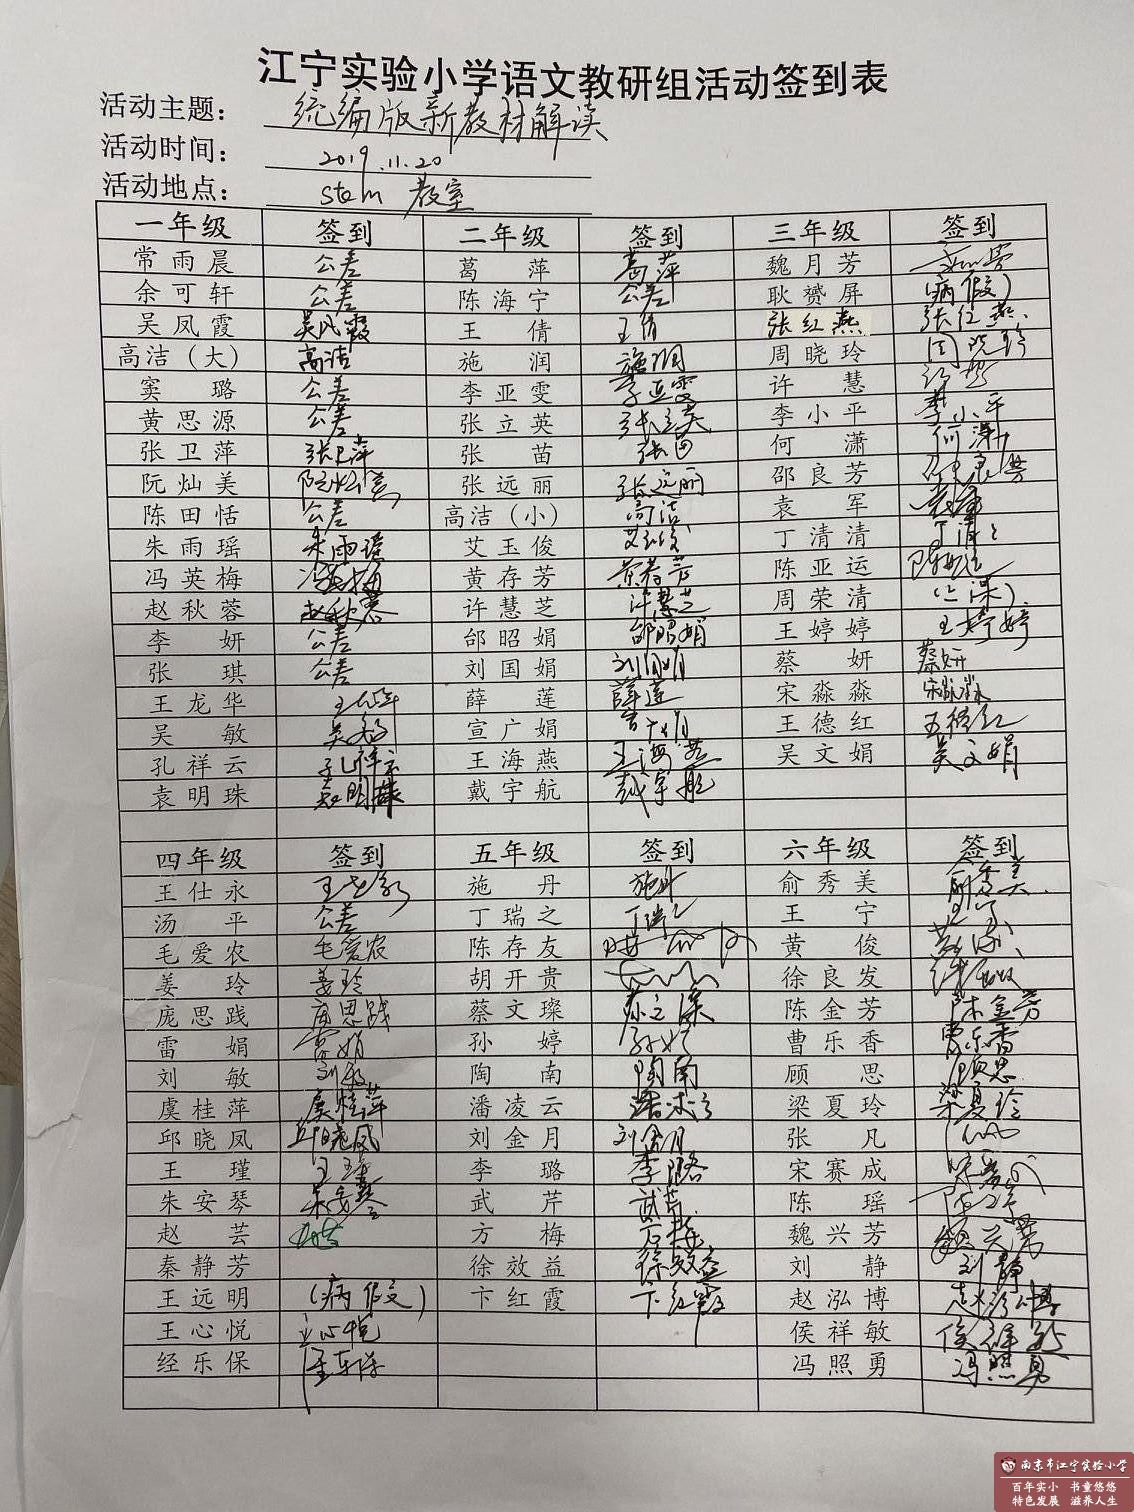 江宁实验小学语文教研组活动签到表
活动主题： 统编版新教材解读
活动时间： 2019.11.20
活动地点： stem 教室
一年级 签到 二年级 签到 三年级 签到
常雨晨 公差 葛萍 葛萍 魏月芳
余可轩 公差 陈海宁 公差 耿赟屏 (病假)
吴凤霞 吴凤霞 王倩 王倩 张红燕 张红燕
高洁（大） 高洁 施润 施润 周晓玲 周晓玲
窦璐 公差 李亚雯 李亚雯 许慧 许慧
黄思源 公差 张立英 张立英 李小平 李小平
张卫萍 张卫萍 张苗 张苗 何潇 何潇
阮灿美 阮灿美 张远丽 张远丽 邵良芳 邵良芳
陈田恬 公差 高洁（小） 高洁 袁军 袁军
朱雨瑶 朱雨瑶 艾玉俊 艾玉俊 丁清清 丁清清
冯英梅 冯英梅 黄存芳 黄存芳 陈亚运 陈亚运
赵秋蓉 赵秋蓉 许慧芝 许慧芝 周荣清
李妍 公差 邰昭娟 邰昭娟 王婷婷 王婷婷
张琪 公差 刘国娟 刘国娟 蔡妍 蔡妍
王龙华 王龙华 薛莲 薛莲 宋淼淼 宋淼淼
吴敏 吴敏 宣广娟 宣广娟 王德红 王德红
孔祥云 孔祥云 王海燕 王海燕 吴文娟 吴文娟
袁明珠 袁明珠 戴宇航 戴宇航
四年级 签到 五年级 签到 六年级 签到
王仕永 王仕永 施丹 施丹 俞秀美 俞秀美
汤平 公差 丁瑞之 丁瑞之 王宁 王宁
毛爱农 毛爱农 陈存友 黄俊 黄俊
姜玲 姜玲 胡开贵 徐良发 徐良发
庞思践 庞思践 蔡文璨 蔡文璨 陈金芳 陈金芳
雷娟 雷娟 孙婷 孙婷 曹乐香 曹乐香
刘敏 刘敏 陶南 陶南 顾思 顾思
虞桂萍 虞桂萍 潘凌云 潘凌云 梁夏玲 梁夏玲
邱晓凤 邱晓凤 刘金月 刘金月 张凡
王瑾 王瑾 李璐 李璐 宋赛成
朱安琴 朱安琴 武芹 武芹 陈瑶 陈瑶
赵芸 方梅 方梅 魏兴芳 魏兴芳
秦静芳 徐效益 徐效益 刘静 刘静
王远明 (病假) 卞红霞 卞红霞 赵泓博 赵泓博
王心悦 王心悦 侯祥敏 侯祥敏
经乐保 经乐保 冯照勇 冯照勇
南京市江宁实验小学
百年实小 书童悠悠
特色发展 滋养人生